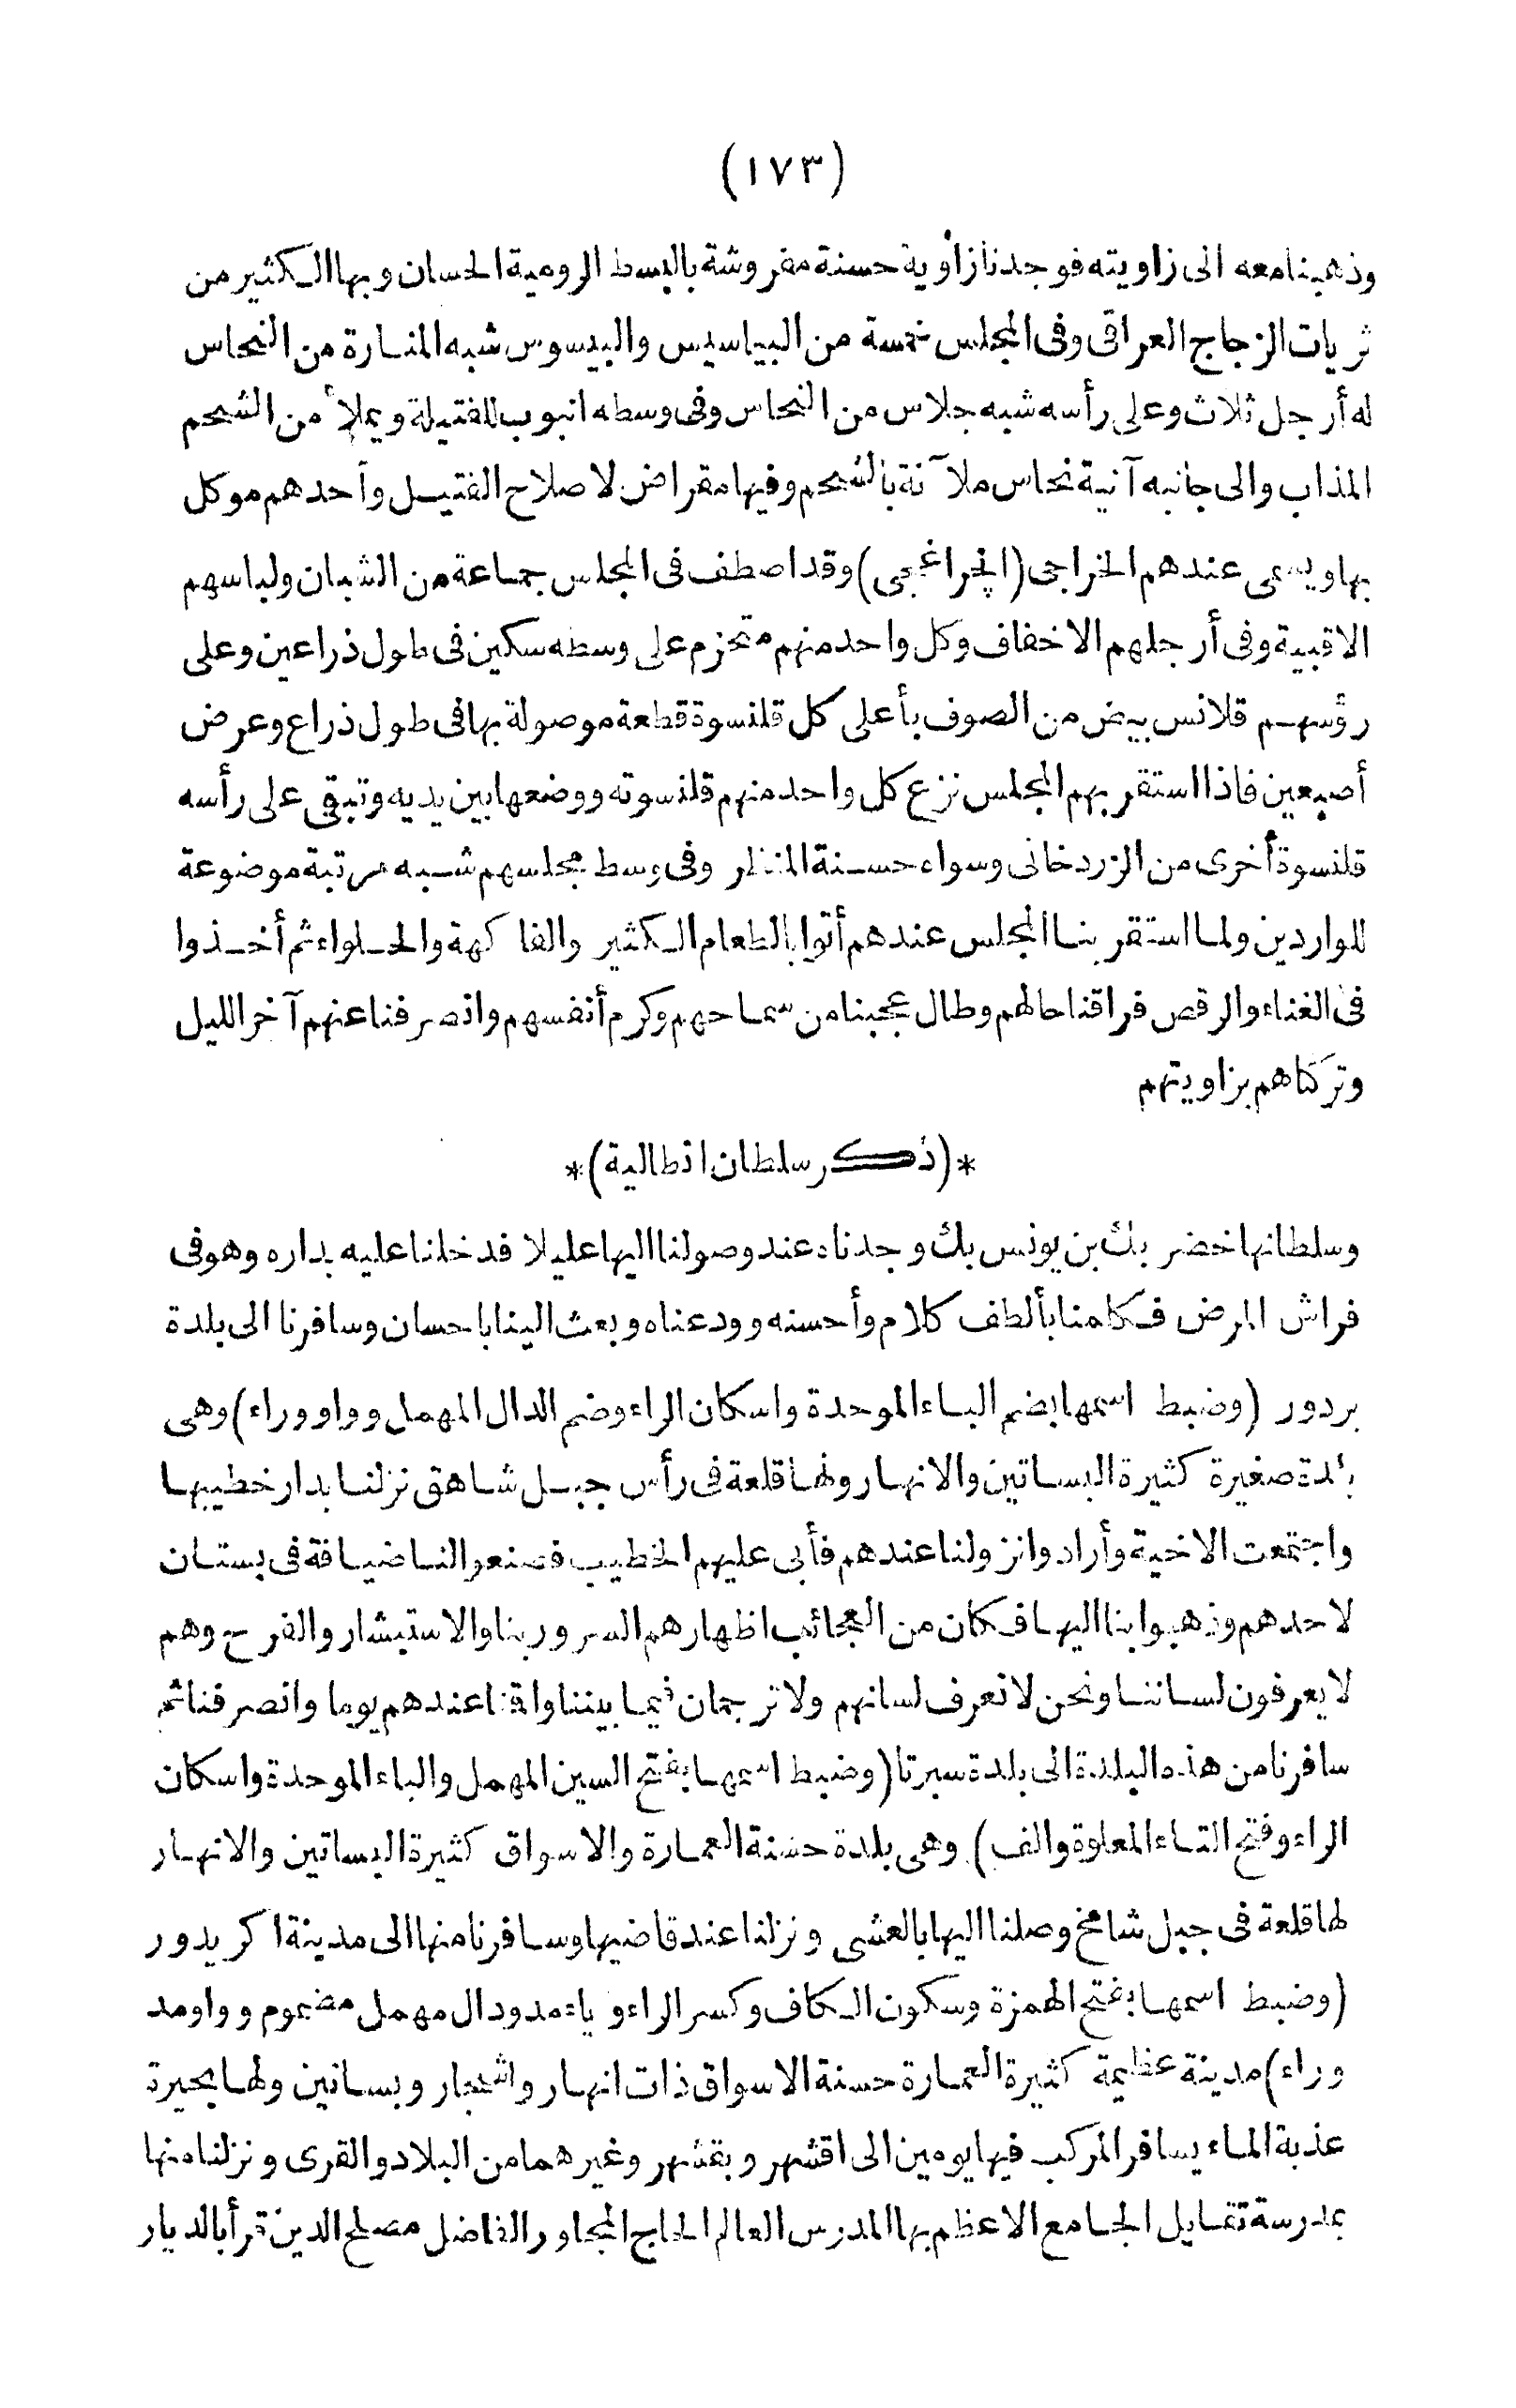 (١٧٣)
وذهبنا معه الى زاويته فوجدنا زاوية حسنة مفروشة بالبسط الرومية الحسان وبها الكثير من
ثريات الزجاج العراقى وفى المجلس خمسة من البياسيس والبيسوس شبه المنارة من النحاس
له أرجل ثلاث وعلى رأسه شبه جلاس من النحاس وفى وسطه انبوب للفتيلة ويملأ من الشحم
المذاب والى جانبه آنية نحاس ملآنة بالشحم وفيها مقراض لاصلاح الفتيل وأحدهم موكل
بها ويسمى عندهم الخراجى (الچراغجى) وقد اصطف فى المجلس جماعة من الشبان ولباسهم
الاقبية وفى أرجلهم الاخفاف وكل واحد منهم متحزم على وسطه سكين فى طول ذراعين وعلى
رؤسهم قلانس بيض من الصوف بأعلى كل قلنسوة قطعة موصولة بها فى طول ذراع وعرض
أصبعين فاذا استقر بهم المجلس نزع كل واحد منهم قلنسوته ووضعها بين يديه وتبقى على رأسه
قلنسوة أخرى من الزردخانى وسواه حسنة المنظر وفى وسط مجلسهم شبه مرتبة موضوعة
للواردين ولما استقر بنا المجلس عندهم أتوا بالطعام الكثير والفاكهة والحلواء ثم أخذوا
فى الغناء والرقص فراقنا حالهم وطال عجبنا من سماحهم وكرم أنفسهم وانصرفنا عنهم آخر الليل
وتركناهم بزاويتهم
*(ذكر سلطان انطالية)*
وسلطانها خضر بك بن يونس بك وجدناه عند وصولنا اليها عليلا فدخلنا عليه بداره وهو فى
فراش المرض فكلمنا بألطف كلام وأحسنه وودعناه وبعث الينا باحسان وسافرنا الى بلدة
بردور (وضبط اسمها بضم الباء الموحدة واسكان الراء وضم الدال المهمل وواو وراء) وهى
بلدة صغيرة كثيرة البساتين والانهار ولها قلعة فى رأس جبل شاهق نزلنا بدار خطيبها
واجتمعت الاخية وأرادوا نزولنا عندهم فأبى عليهم الخطيب فصنعوا لنا ضيافة فى بستان
لاحدهم وذهبوا بنا اليها فكان من العجائب اظهارهم السرور بنا والاستبشار والفرح وهم
لا يعرفون لساننا ونحن لا نعرف لسانهم ولا ترجمان فيما بيننا واقنا عندهم يوما وانصرفنا ثم
سافرنا من هذه البلدة الى بلدة سبرتا (وضبط اسمها بفتح السين المهمل والباء الموحدة واسكان
الراء وفتح التاء المعلوة والف) وهى بلدة حسنة العمارة والاسواق كثيرة البساتين والانهار
لها قلعة فى جبل شامخ وصلنا اليها بالعشى ونزلنا عند قاضيها وسافرنا منها الى مدينة اكريدور
(وضبط اسمها بفتح الهمزة وسكون الكاف وكسر الراء وياء مد ودال مهمل مضموم وواو مد
وراء) مدينة عظيمة كثيرة العمارة حسنة الاسواق ذات انهار واشجار وبساتين ولها بحيرة
عذبة الماء يسافر المركب فيها يومين الى اقشهر وبقشهر وغيرهما من البلاد والقرى ونزلنا منها
بمدرسة تقابل الجامع الاعظم بها المدرس العالم الحاج المجاور الفاضل مصلح الدين قرأ بالديار